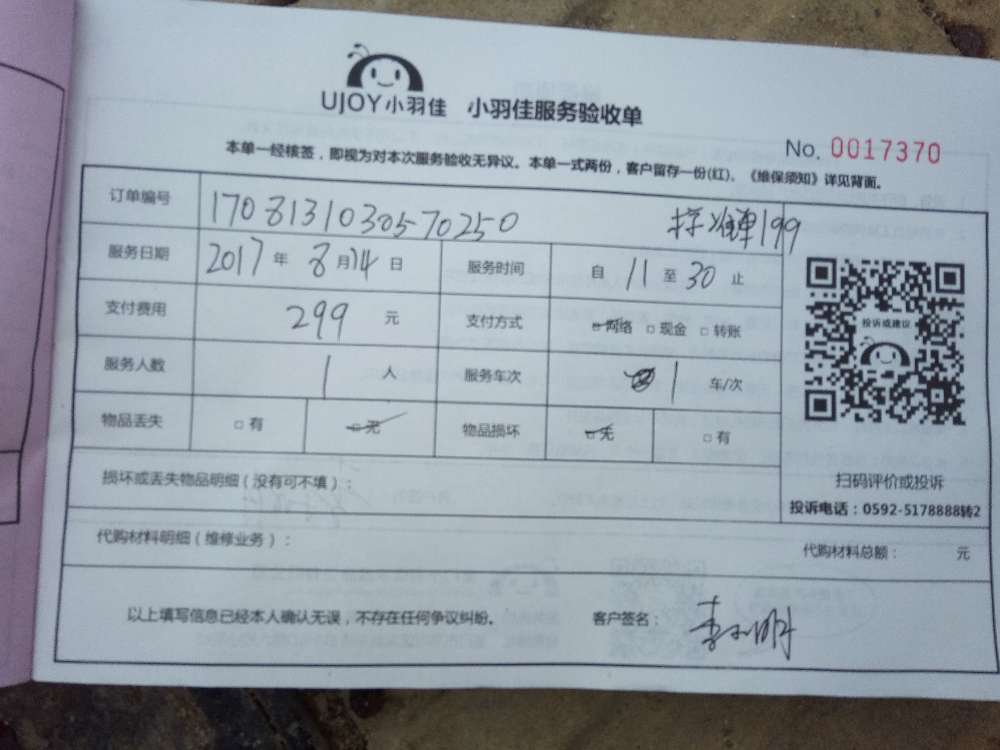 UJOY小羽佳 小羽佳服务验收单
No. 0017370
本单一经核签，即视为对本次服务验收无异议。本单一式两份，客户留存一份(红)、《维保须知》详见背面。
订单编号 170813103057 0250 199
服务日期 2017年8月14日 服务时间 自11至30止
投诉或建议
支付费用 299元 支付方式 □网络 □现金 □转账
服务人数 1人 服务车次 1车/次
物品丢失 □有 □无 物品损坏 □无 □有
损坏或丢失物品明细（没有可不填）：
扫码评价或投诉
投诉电话：0592-5178888转2
代购材料明细（维修业务）：
代购材料总额： 元
以上填写信息已经本人确认无误，不存在任何争议纠纷。 客户签名：